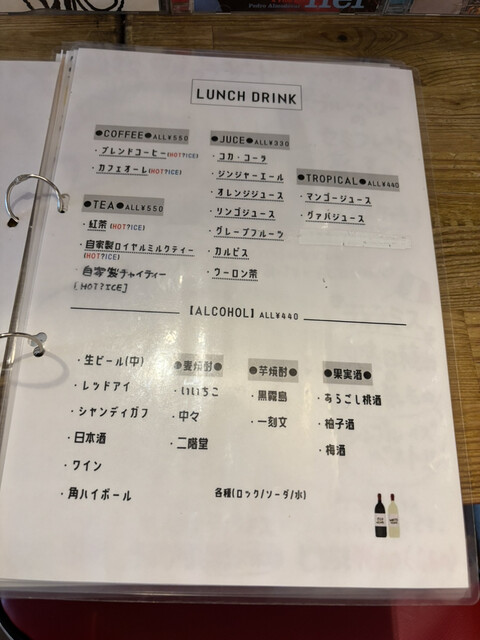 LUNCH DRINK
●COFFEE●ALL¥550
・ブレンドコーヒー(HOT?ICE)
・カフェオーレ(HOT?ICE)
●TEA●ALL¥550
・紅茶(HOT?ICE)
・自家製ロイヤルミルクティー
(HOT?ICE)
・自家製チャイティー
[HOT?ICE]
●JUCE●ALL¥330
・コカ・コーラ
・ジンジャーエール
・オレンジジュース
・リンゴジュース
・グレープフルーツ
・カルピス
・ウーロン茶
●TROPICAL●ALL¥440
・マンゴージュース
・グァバジュース
【ALCOHOL】ALL¥440
・生ビール(中)
・レッドアイ
・シャンディガフ
・日本酒
・ワイン
・角ハイボール
●麦焼酎●
・いいちこ
・中々
・二階堂
●芋焼酎●
・黒霧島
・一刻文
●果実酒●
・あらごし桃酒
・柚子酒
・梅酒
各種(ロック/ソーダ/水)